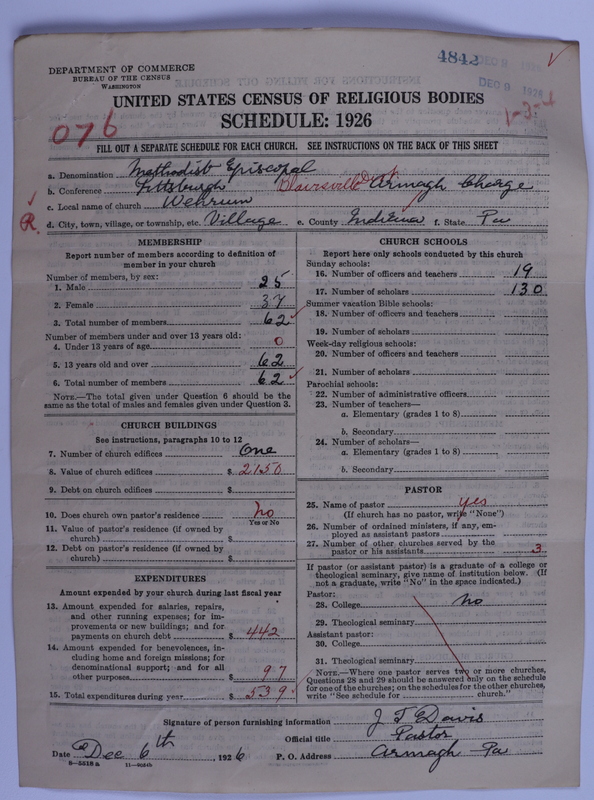 DEPARTMENT OF COMMERCE
BUREAU OF THE CENSUS
WASHINGTON
4842
DEC 9 1926
1-3-4
UNITED STATES CENSUS OF RELIGIOUS BODIES
SCHEDULE: 1926
076
FILL OUT A SEPARATE SCHEDULE FOR EACH CHURCH. SEE INSTRUCTIONS ON THE BACK OF THIS SHEET
a. Denomination Methodist Episcopal
b. Conference Pittsburgh Blairsville Dist Armagh Charge
c. Local name of church Wehrum
R
d. City, town, village, or township, etc. Village e. County Indiana f. State Pa
MEMBERSHIP
Report number of members according to definition of
member in your church
Number of members, by sex:
1. Male 25
2. Female 37
3. Total number of members 62
Number of members under and over 13 years old:
4. Under 13 years of age 0
5. 13 years old and over 62
6. Total number of members 62
NOTE.—The total given under Question 6 should be the
same as the total of males and females given under Question 3.
CHURCH BUILDINGS
See instructions, paragraphs 10 to 12
7. Number of church edifices One
8. Value of church edifices $ 2150
9. Debt on church edifices $
10. Does church own pastor's residence no
Yes or No
11. Value of pastor's residence (if owned by
church) $
12. Debt on pastor's residence (if owned by
church) $
EXPENDITURES
Amount expended by your church during last fiscal year
13. Amount expended for salaries, repairs,
and other running expenses; for im-
provements or new buildings; and for
payments on church debt $ 442
14. Amount expended for benevolences, in-
cluding home and foreign missions; for
denominational support; and for all
other purposes $ 97
15. Total expenditures during year $ 539
CHURCH SCHOOLS
Report here only schools conducted by this church
Sunday schools:
16. Number of officers and teachers 19
17. Number of scholars 130
Summer vacation Bible schools:
18. Number of officers and teachers
19. Number of scholars
Week-day religious schools:
20. Number of officers and teachers
21. Number of scholars
Parochial schools:
22. Number of administrative officers
23. Number of teachers—
a. Elementary (grades 1 to 8)
b. Secondary
24. Number of scholars—
a. Elementary (grades 1 to 8)
b. Secondary
PASTOR
25. Name of pastor yes
(If church has no pastor, write "None")
26. Number of ordained ministers, if any, em-
ployed as assistant pastors
27. Number of other churches served by the
pastor or his assistants 3
If pastor (or assistant pastor) is a graduate of a college or
theological seminary, give name of institution below. (If
not a graduate, write "No" in the space indicated.)
Pastor:
28. College no
29. Theological seminary
Assistant pastor:
30. College
31. Theological seminary
NOTE.—Where one pastor serves two or more churches,
Questions 28 and 29 should be answered only on the schedule
for one of the churches; on the schedules for the other churches,
write "See schedule for church."
Signature of person furnishing information J T Davis
Official title Pastor
Date Dec 6th, 1926 P. O. Address Armagh Pa